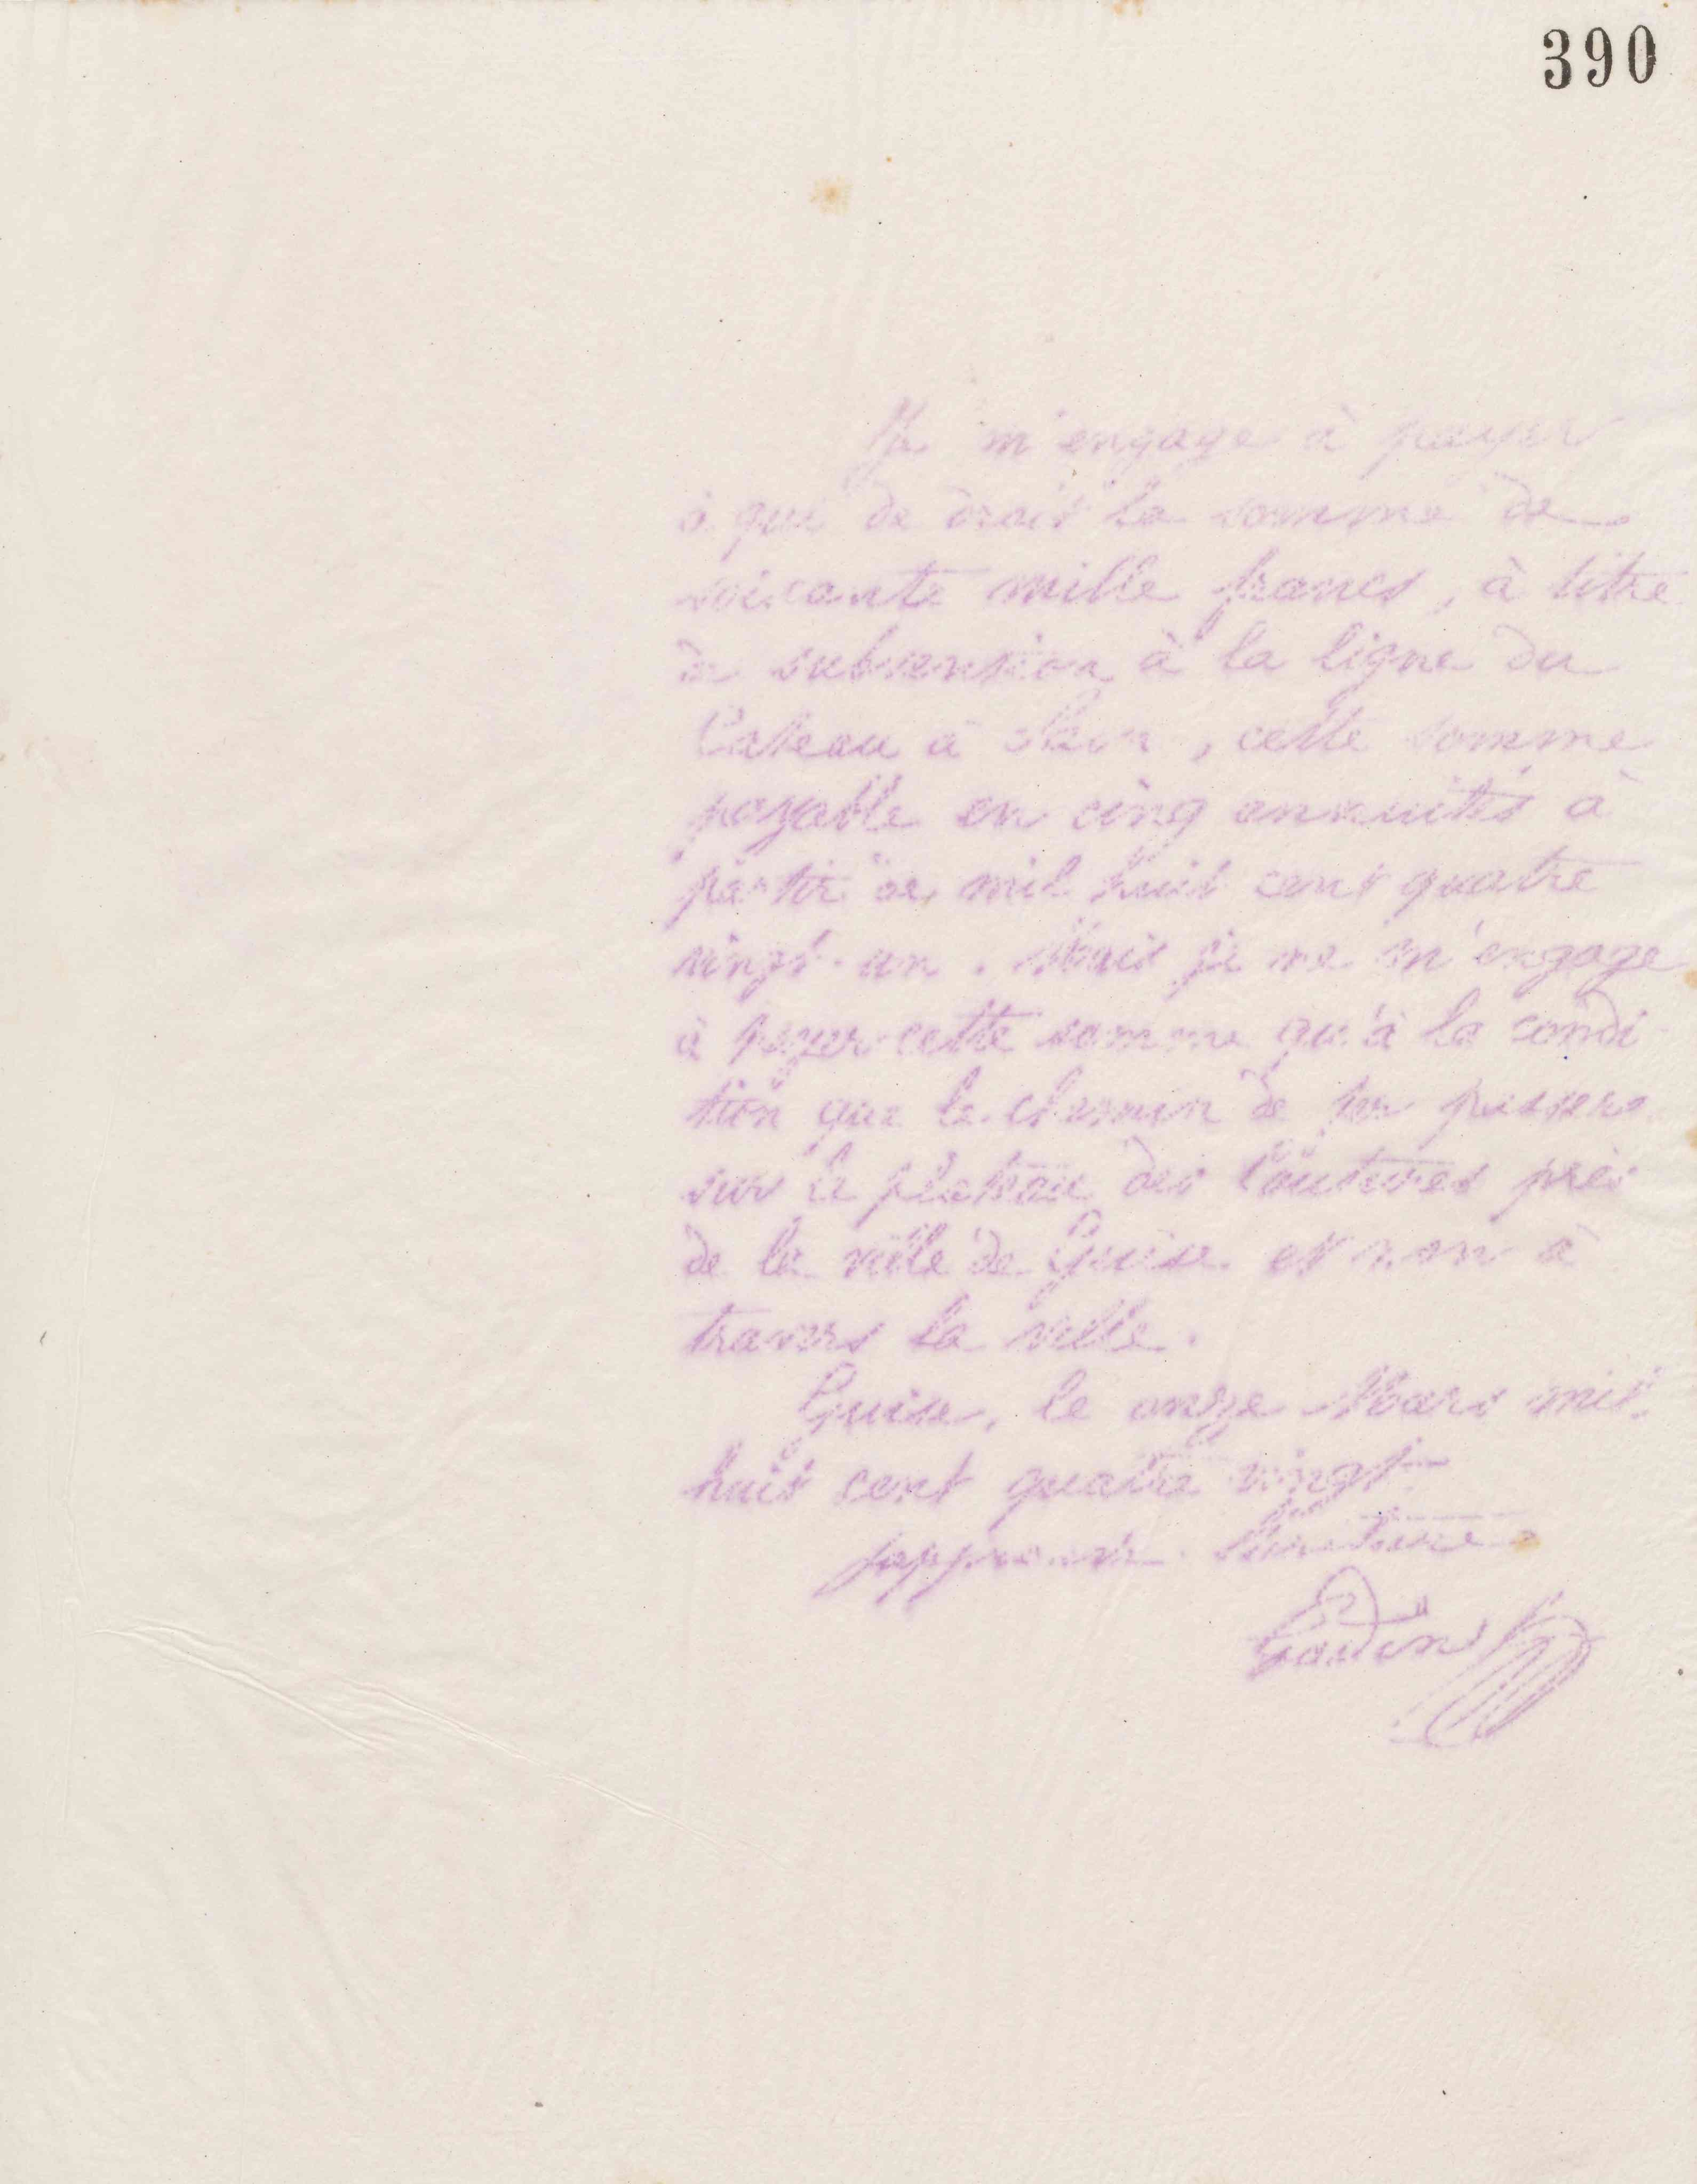 390
Je m'engage à payer
à qui de droit la somme de
soixante mille francs, à titre
de subvention à la ligne du
Cateau à Laon, cette somme
payable en cinq annuités à
partir de mil huit cent quatre
vingt-un. Mais je ne m'engage
à payer cette somme qu'à la condi
tion que le chemin de fer passera
sur le plateau des Coutures près
de la ville de Guise et non à
travers la ville.
Guise, le onze Mars mil
huit cent quatre vingt
j'approuve l'écriture
Godin